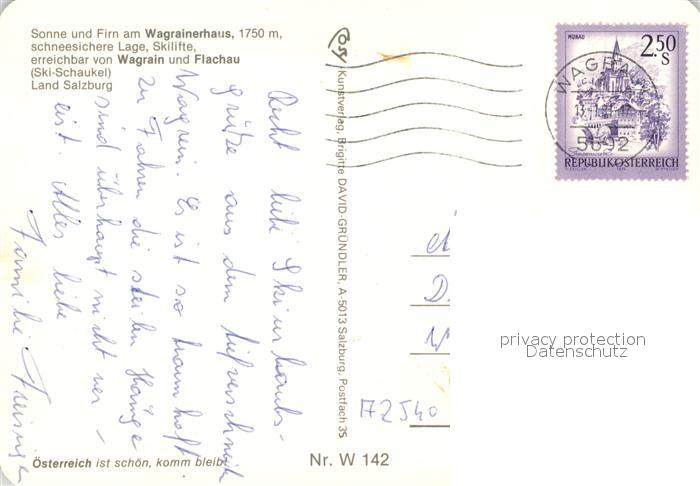 Sonne und Firn am Wagrainerhaus, 1750 m,
schneesichere Lage, Skilifte,
erreichbar von Wagrain und Flachau
(Ski-Schaukel)
Land Salzburg
Recht liebe Skiurlaubs-
grüße aus dem tiefverschneiten
Wagrein. Es ist so traumhaft
zu Fahren die steilen Hänge
sind überhaupt nicht ver-
eist. Alles liebe
Familie
Österreich ist schön, komm bleib!
Nr. W 142
Kunstverlag, Brigitte DAVID-GRÜNDLER, A-5013 Salzburg, Postfach 35
MURAU
2.50
S
REPUBLIK ÖSTERREICH
WAGRAIN
5602
A
D.
W
A2540
privacy protection
Datenschutz